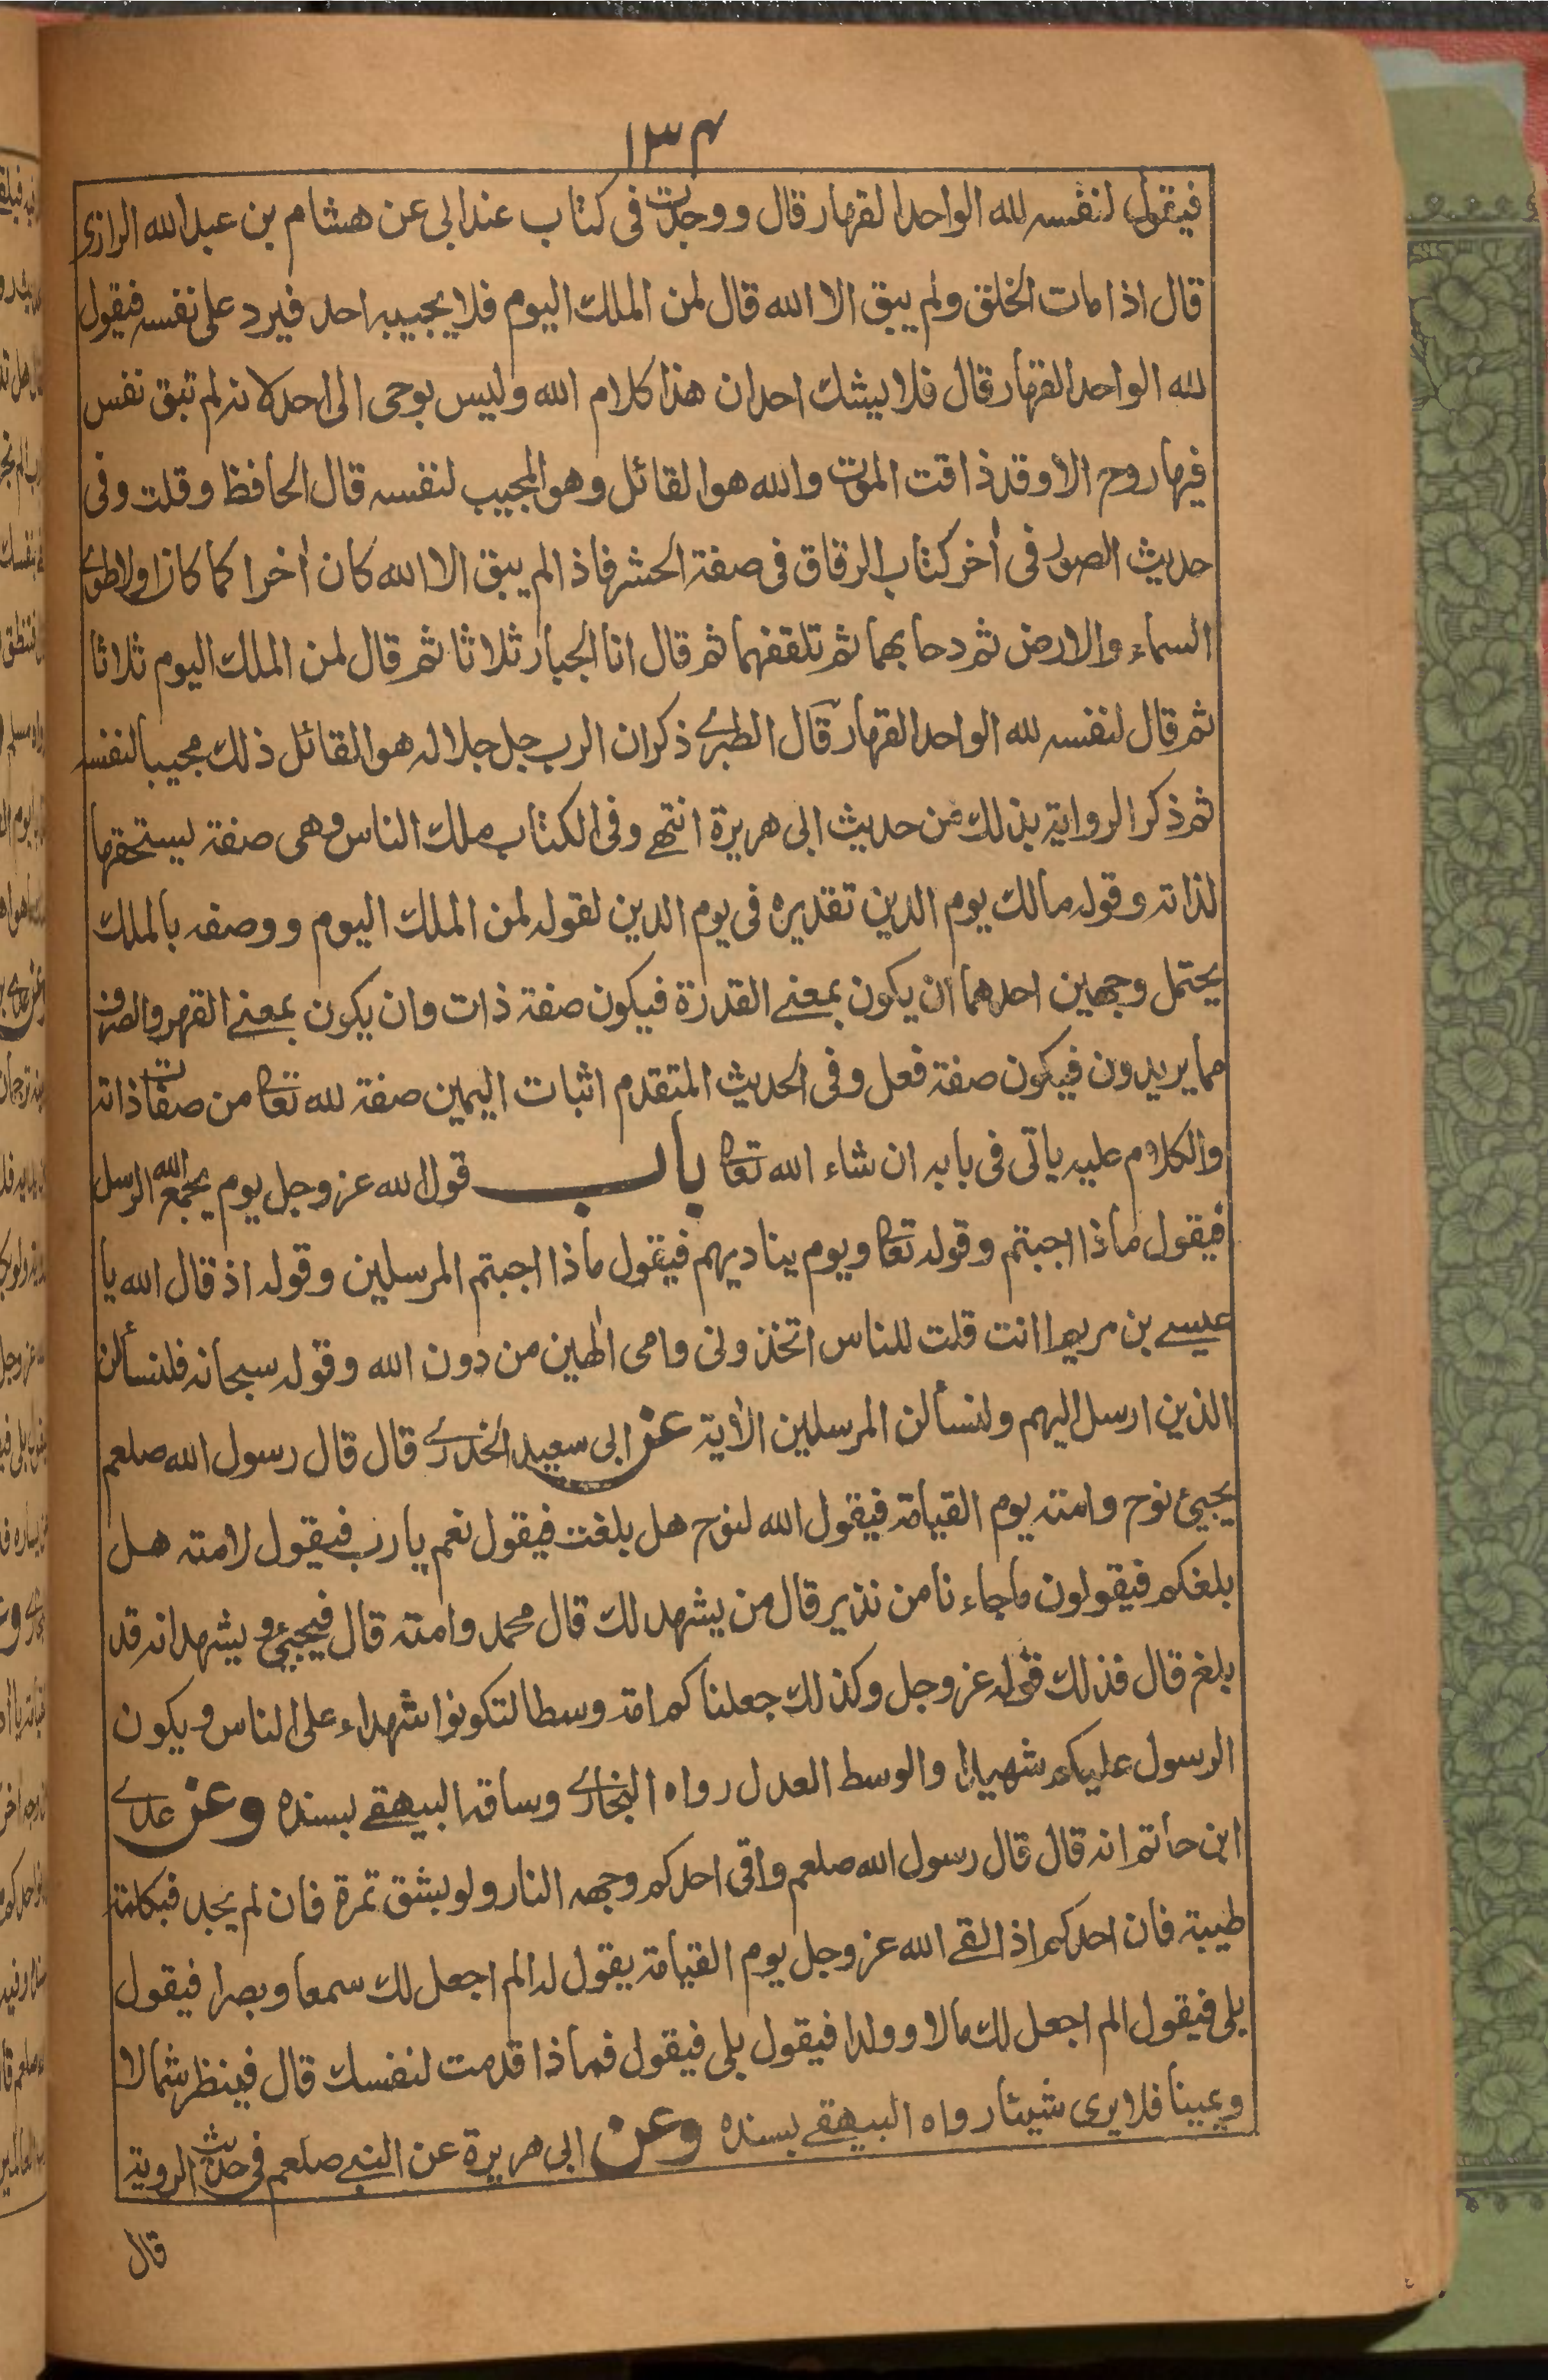 ١٣٤
فيقول لنفسه لله الواحد القهار قال ووجدت فى كتاب عند ابى عن هشام بن عبدالله الرازى
قال اذا مات الخلق ولم يبق الا الله قال لمن الملك اليوم فلا يجيبه احد فيرد على نفسه فيقول
لله الواحد القهار قال فلا يشك احد ان هذا كلام الله وليس بوحى الى احد لانه لم تبق نفس
فيها روح الا وقد ذاقت الموت والله هو القائل وهو المجيب لنفسه قال الحافظ وقلت وفى
حديث الصور فى أخر كتاب الرقاق فى صفة الحشر فاذا لم يبق الا الله كان أخرا كما كان اولا طوى
السماء والارض ثم دحا بهما ثم تلقفهما ثم قال انا الجبار ثلاثا ثم قال لمن الملك اليوم ثلاثا
ثم قال لنفسه لله الواحد القهار قال الطبرى ذكر ان الرب جل جلاله هو القائل ذلك مجيبا لنفسه
ثم ذكر الرواية بذلك من حديث ابى هريرة انتهى وفى الكتاب ملك الناس وهى صفة يستحقها
لذاته وقوله مالك يوم الدين تقديره فى يوم الدين لقوله لمن الملك اليوم ووصفه بالملك
يحتمل وجهين احدهما ان يكون بمعنى القدرة فيكون صفة ذات وان يكون بمعنى القهر والصرف
مما يريدون فيكون صفة فعل وفى الحديث المتقدم اثبات اليمين صفة لله تعا من صفات ذاته
والكلام عليه ياتى فى بابه ان شاء الله تعا باب قول الله عز وجل يوم يجمع الله الرسل
فيقول ماذا اجبتم وقوله تعا ويوم يناديهم فيقول ماذا اجبتم المرسلين وقوله اذ قال الله يا
عيسى بن مريم اانت قلت للناس اتخذونى وامى الٰهين من دون الله وقوله سبحانه فلنسألن
الذين ارسل اليهم ولنسألن المرسلين الأية عن ابى سعيد الخدرى قال قال رسول الله صلعم
يجيئ نوح وامته يوم القيامة فيقول الله لنوح هل بلغت فيقول نعم يا رب فيقول لامته هل
بلغكم فيقولون ما جاءنا من نذير قال من يشهد لك قال محمد وامته قال فيجيئ ويشهد انه قد
بلغ قال فذلك قوله عز وجل وكذلك جعلناكم امة وسطا لتكونوا شهداء على الناس ويكون
الرسول عليكم شهيدا والوسط العدل رواه البخارى وساقه البيهقى بسنده وعن عدى
ابن حاتم انه قال قال رسول الله صلعم واقى احدكم وجهه النار ولو بشق تمرة فان لم يجد فبكلمة
طيبة فان احدكم اذا لقى الله عز وجل يوم القيامة يقول له الم اجعل لك سمعا وبصرا فيقول
بلى فيقول الم اجعل لك مالا وولدا فيقول بلى فيقول فماذا قدمت لنفسك قال فينظر شمالا
ويمينا فلا يرى شيئا رواه البيهقى بسنده وعن ابى هريرة عن النبى صلعم فى حديث الروية
قال